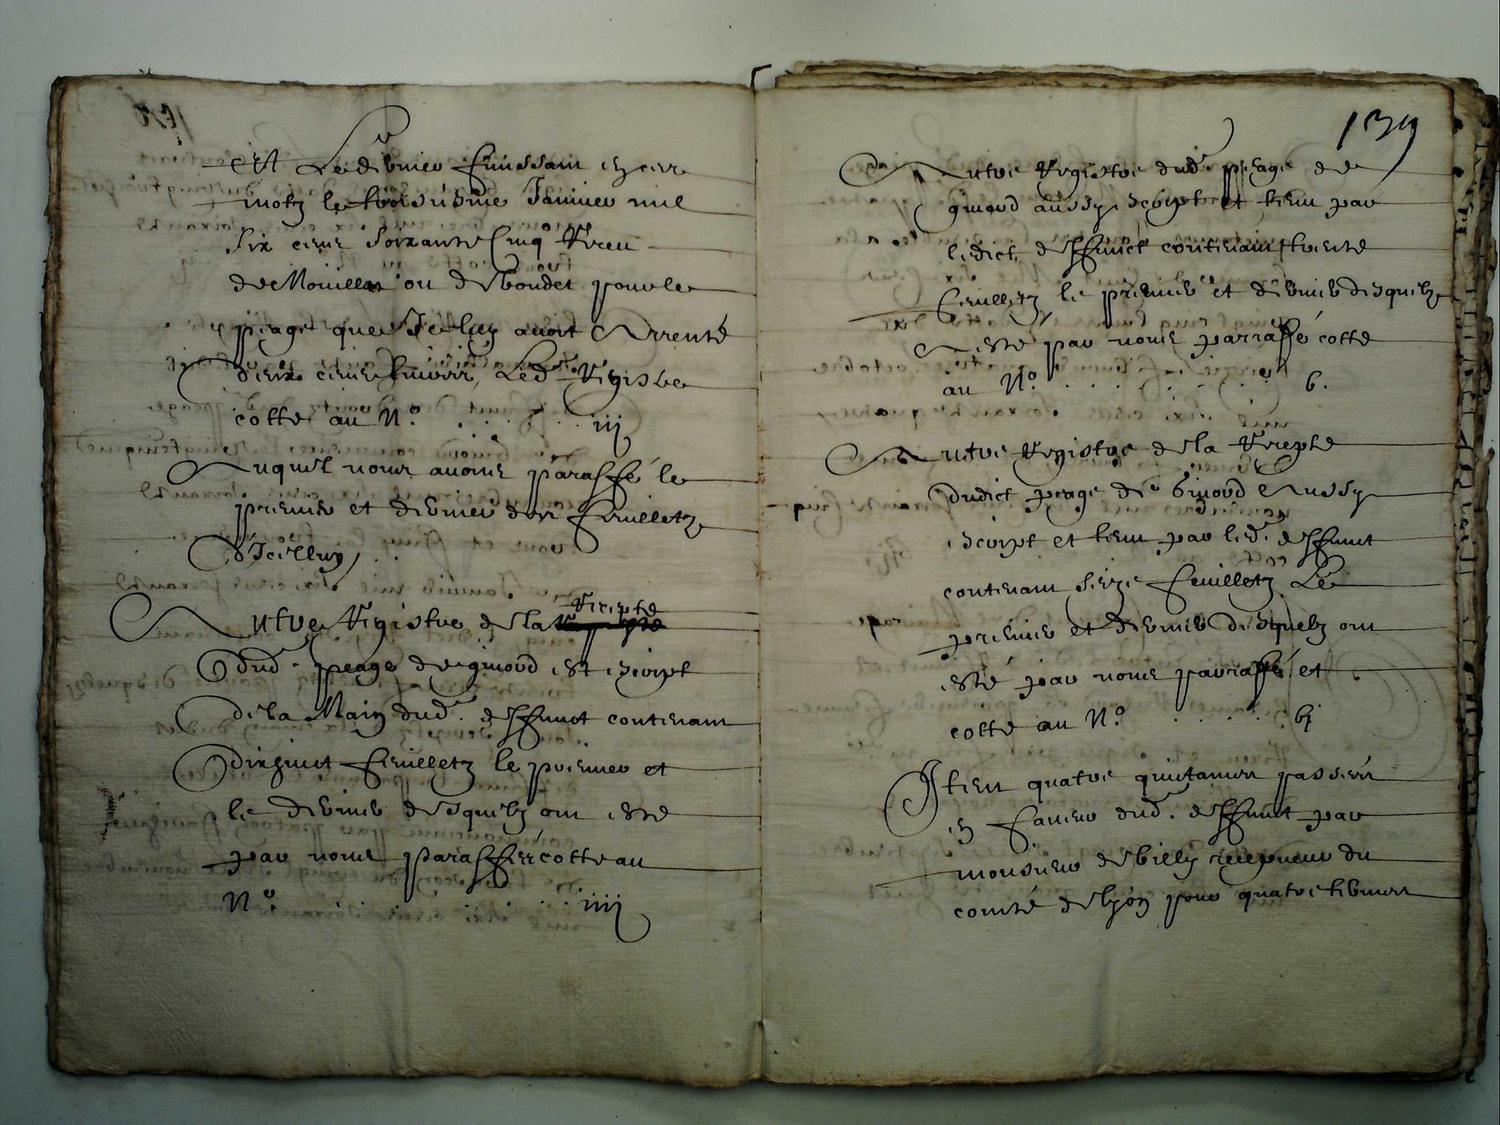 est Le dernier finissant en ces
motz le troisiesme Janvier mil
six cens soixante cinq Receu
de Mouillen ou de bondet pour le
peage que Jceluy avoit Arrenté
deux cens Led.t Registre
cotte au N.o . . . . . . iij
Auquel nous avons paraffé le
premier et dernier des feuilletz
d'Jcelluy
Autre Registre de la Recepte
dud. peage de giuord est escript
de la Main dud. deffunct contenant
dixhuict feuilletz le premier et
le dernier desquelz ont esté
par nous paraffés cotté au
N.o . . . . . . . iiij
139
Autre Registre dud. peage de
giuord aussy escript et tenu par
ledict deffunct contenant trente
feuilletz le premier et dernier desquelz
esté par nous parraffé cotté
au N.o . . . . . . . . 6.
Autre Registre de la Recepte
dudict peage de Giuord Aussy
escript et tenu par led. deffunct
contenant seize feuilletz Le
premier et dernier desquelz ont
esté par nous parraffé et
cotté au N.o . . . . . 6j
Item quatre quictances passées
en faueur dud. deffunct par
monsieur de billy recepueur du
comté de lyon pour quatre termes